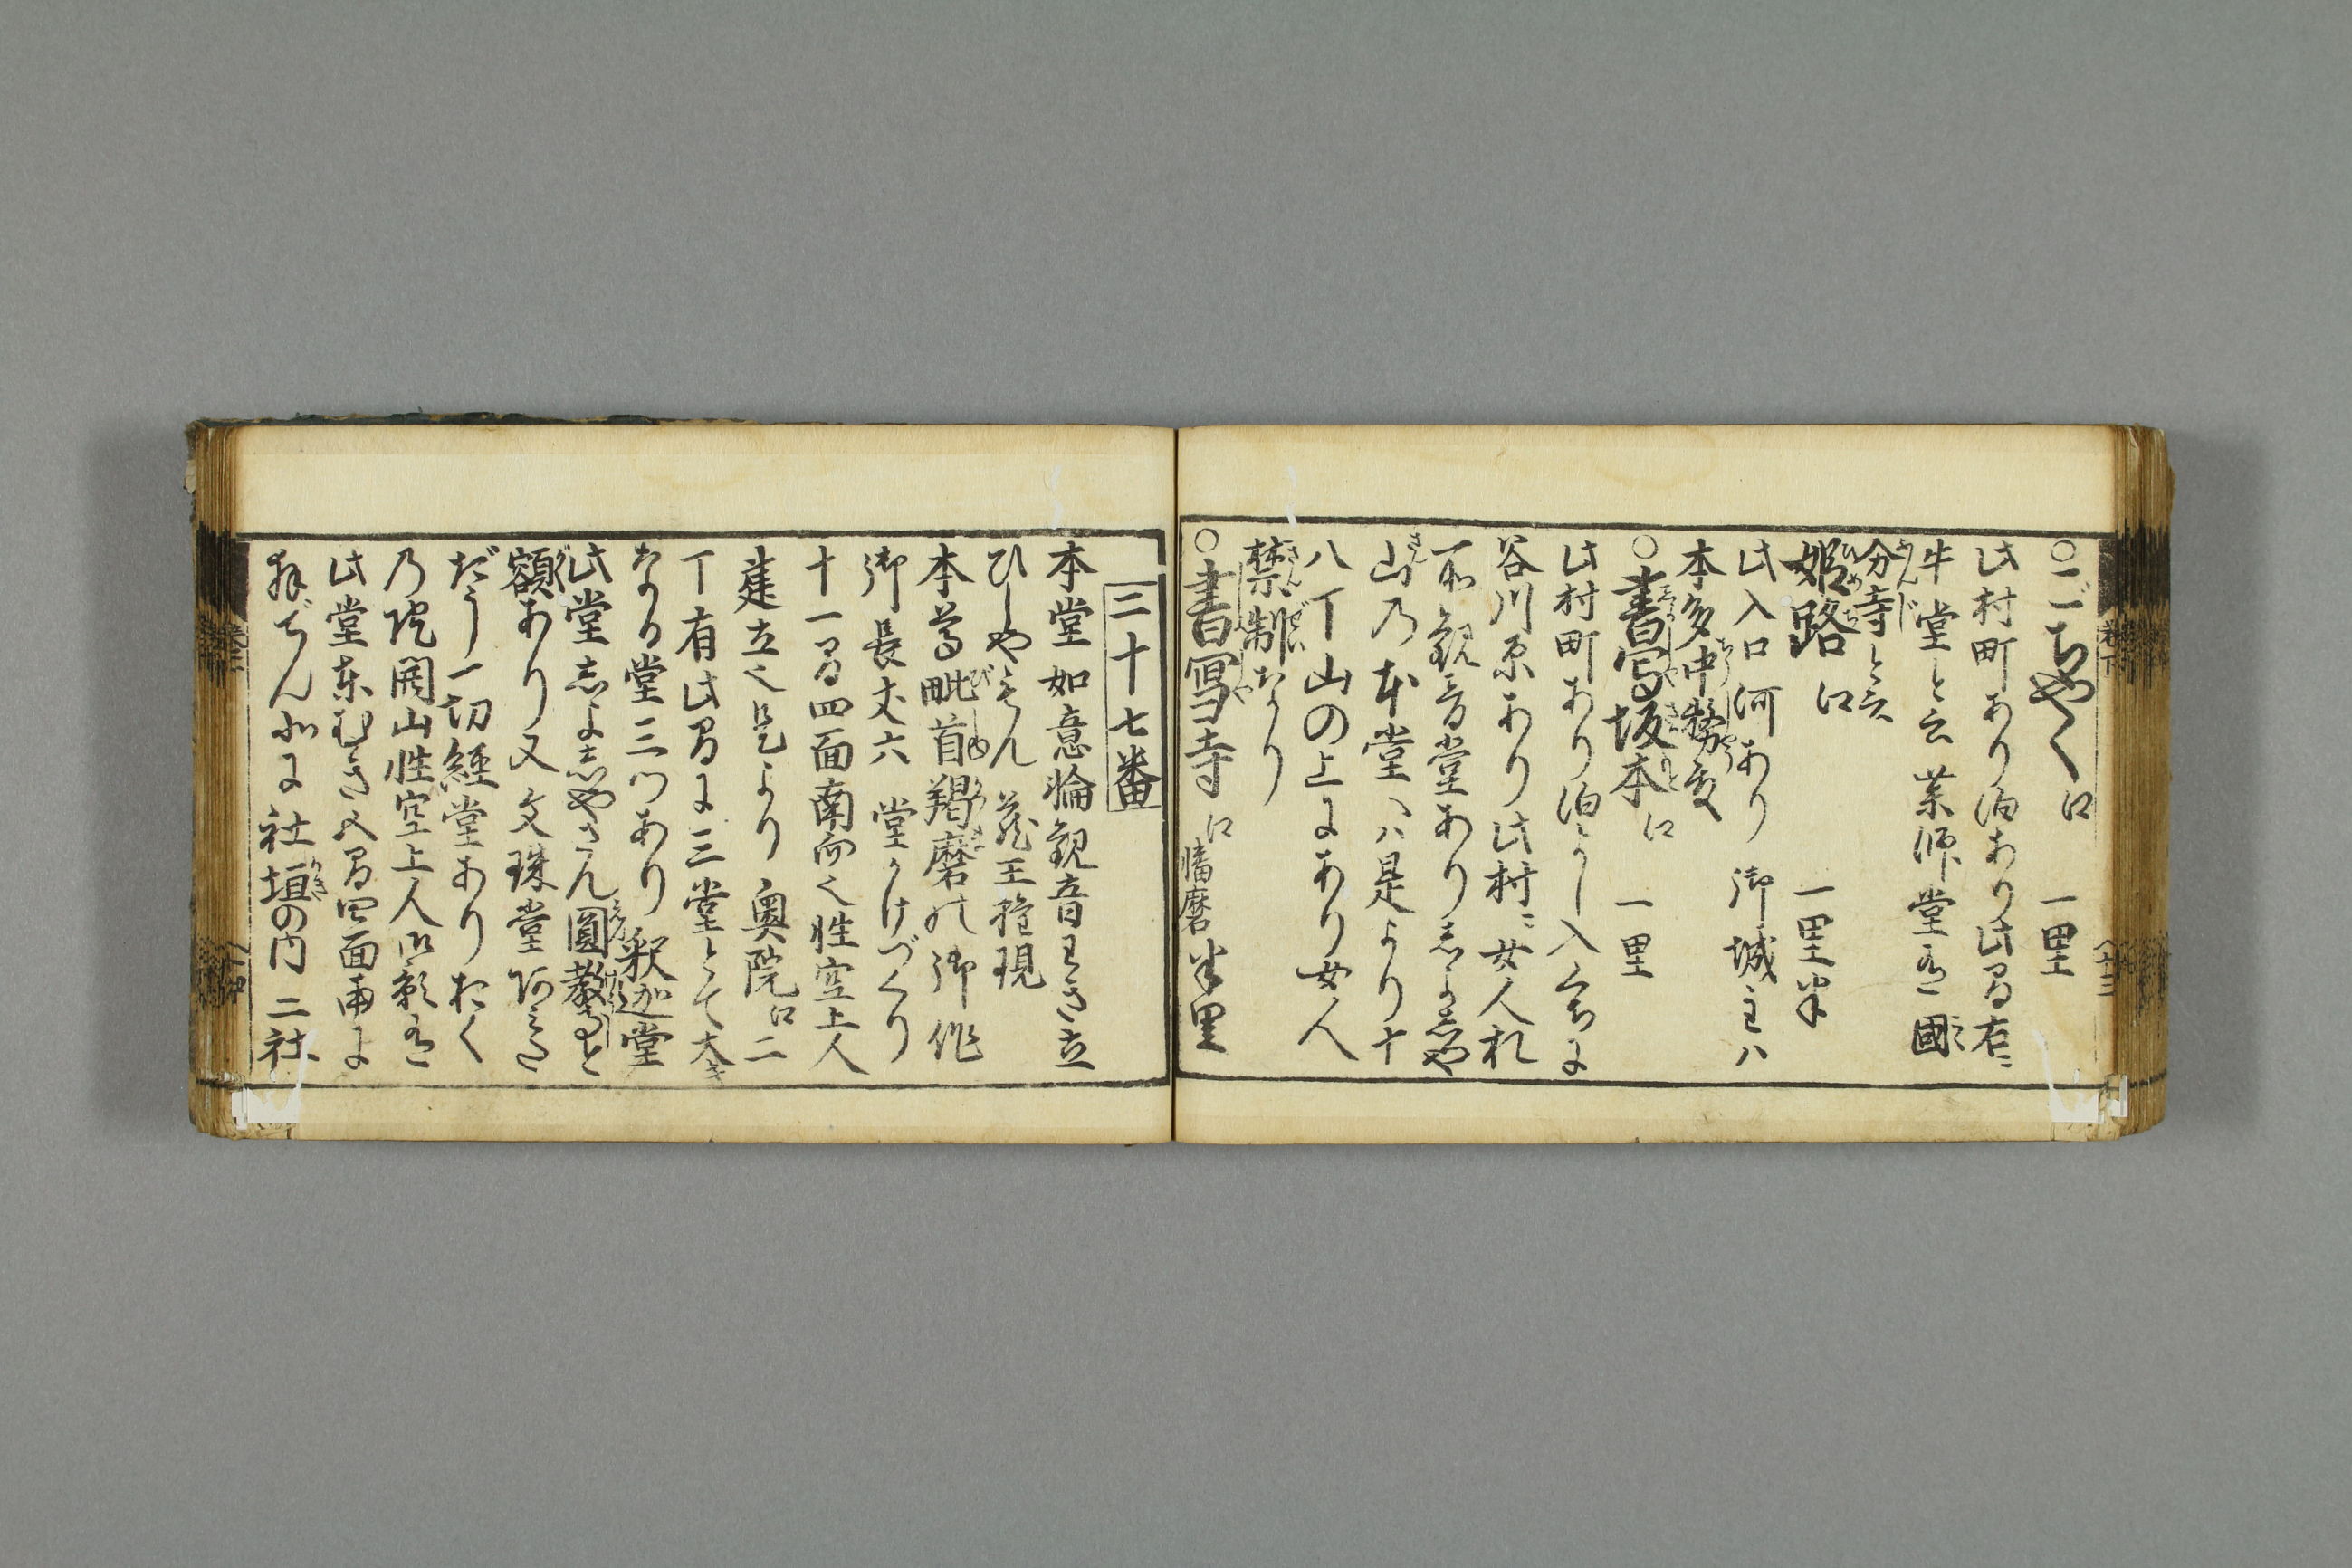 ○ごちやく 口 一里
此村町あり泊あり此間右ニ
牛堂と云薬師堂有国
分寺と云
姫路 口 一里半
此入口河あり 御城主ハ
本多中務殿
○書写坂本 口 一里
此村町あり泊よし入くちに
谷川原あり此村ニ女人札
所観音堂ありしよしや
山乃本堂ハ是より十
八丁山の上にあり女人
禁制なり
○書寫寺 口 播磨 半里
三十七番
本堂如意輪観音
ひしやもん 蔵王権現
本尊毗首羯磨の御作
御長丈六 堂かけづくり
十一間四面南向也性空上人
建立也是より奥院口二
丁有此間に三堂とて大き
なる堂三つあり釈迦堂
此堂しよしやさん圓教寺と
額あり又文珠堂阿ミだ
だう一切経堂ありおく
乃院開山性空上人御影有
此堂東むき五間四面南に
社垣の内二社